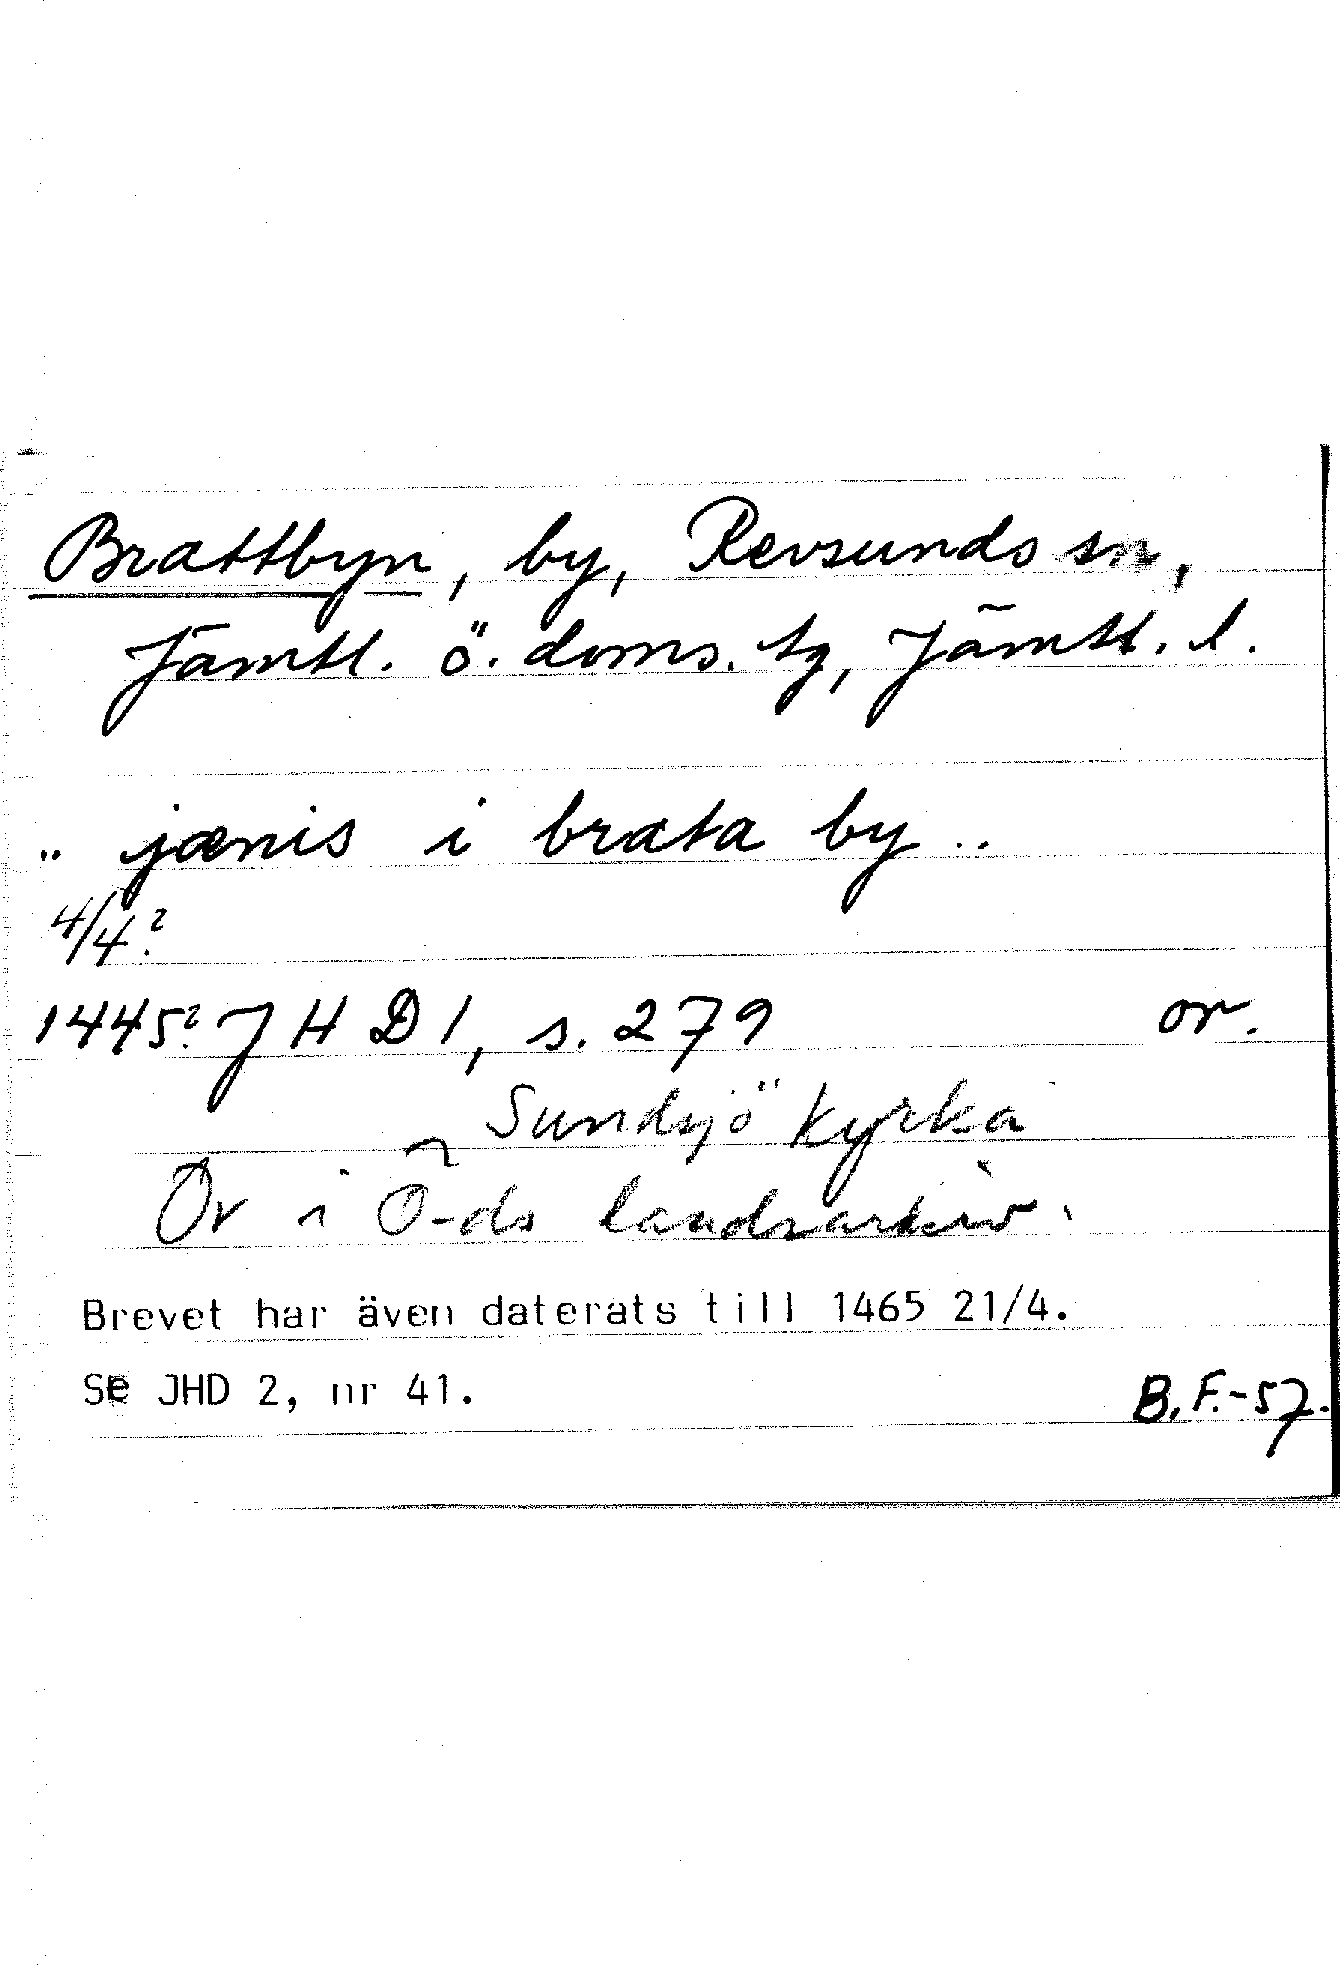 Brattbyn, by, Revsunds sn,
Jämtl. ö. doms. tg, Jämtl. l.
.. jænis i brata by ..
4/4?
1445? JHD 1, s. 279 or.
Sundsjö kyrka
Or i Ö-ds landsarkiv.
Brevet har även daterats till 1465 21/4.
Se JHD 2, nr 41.
B.F.-57.